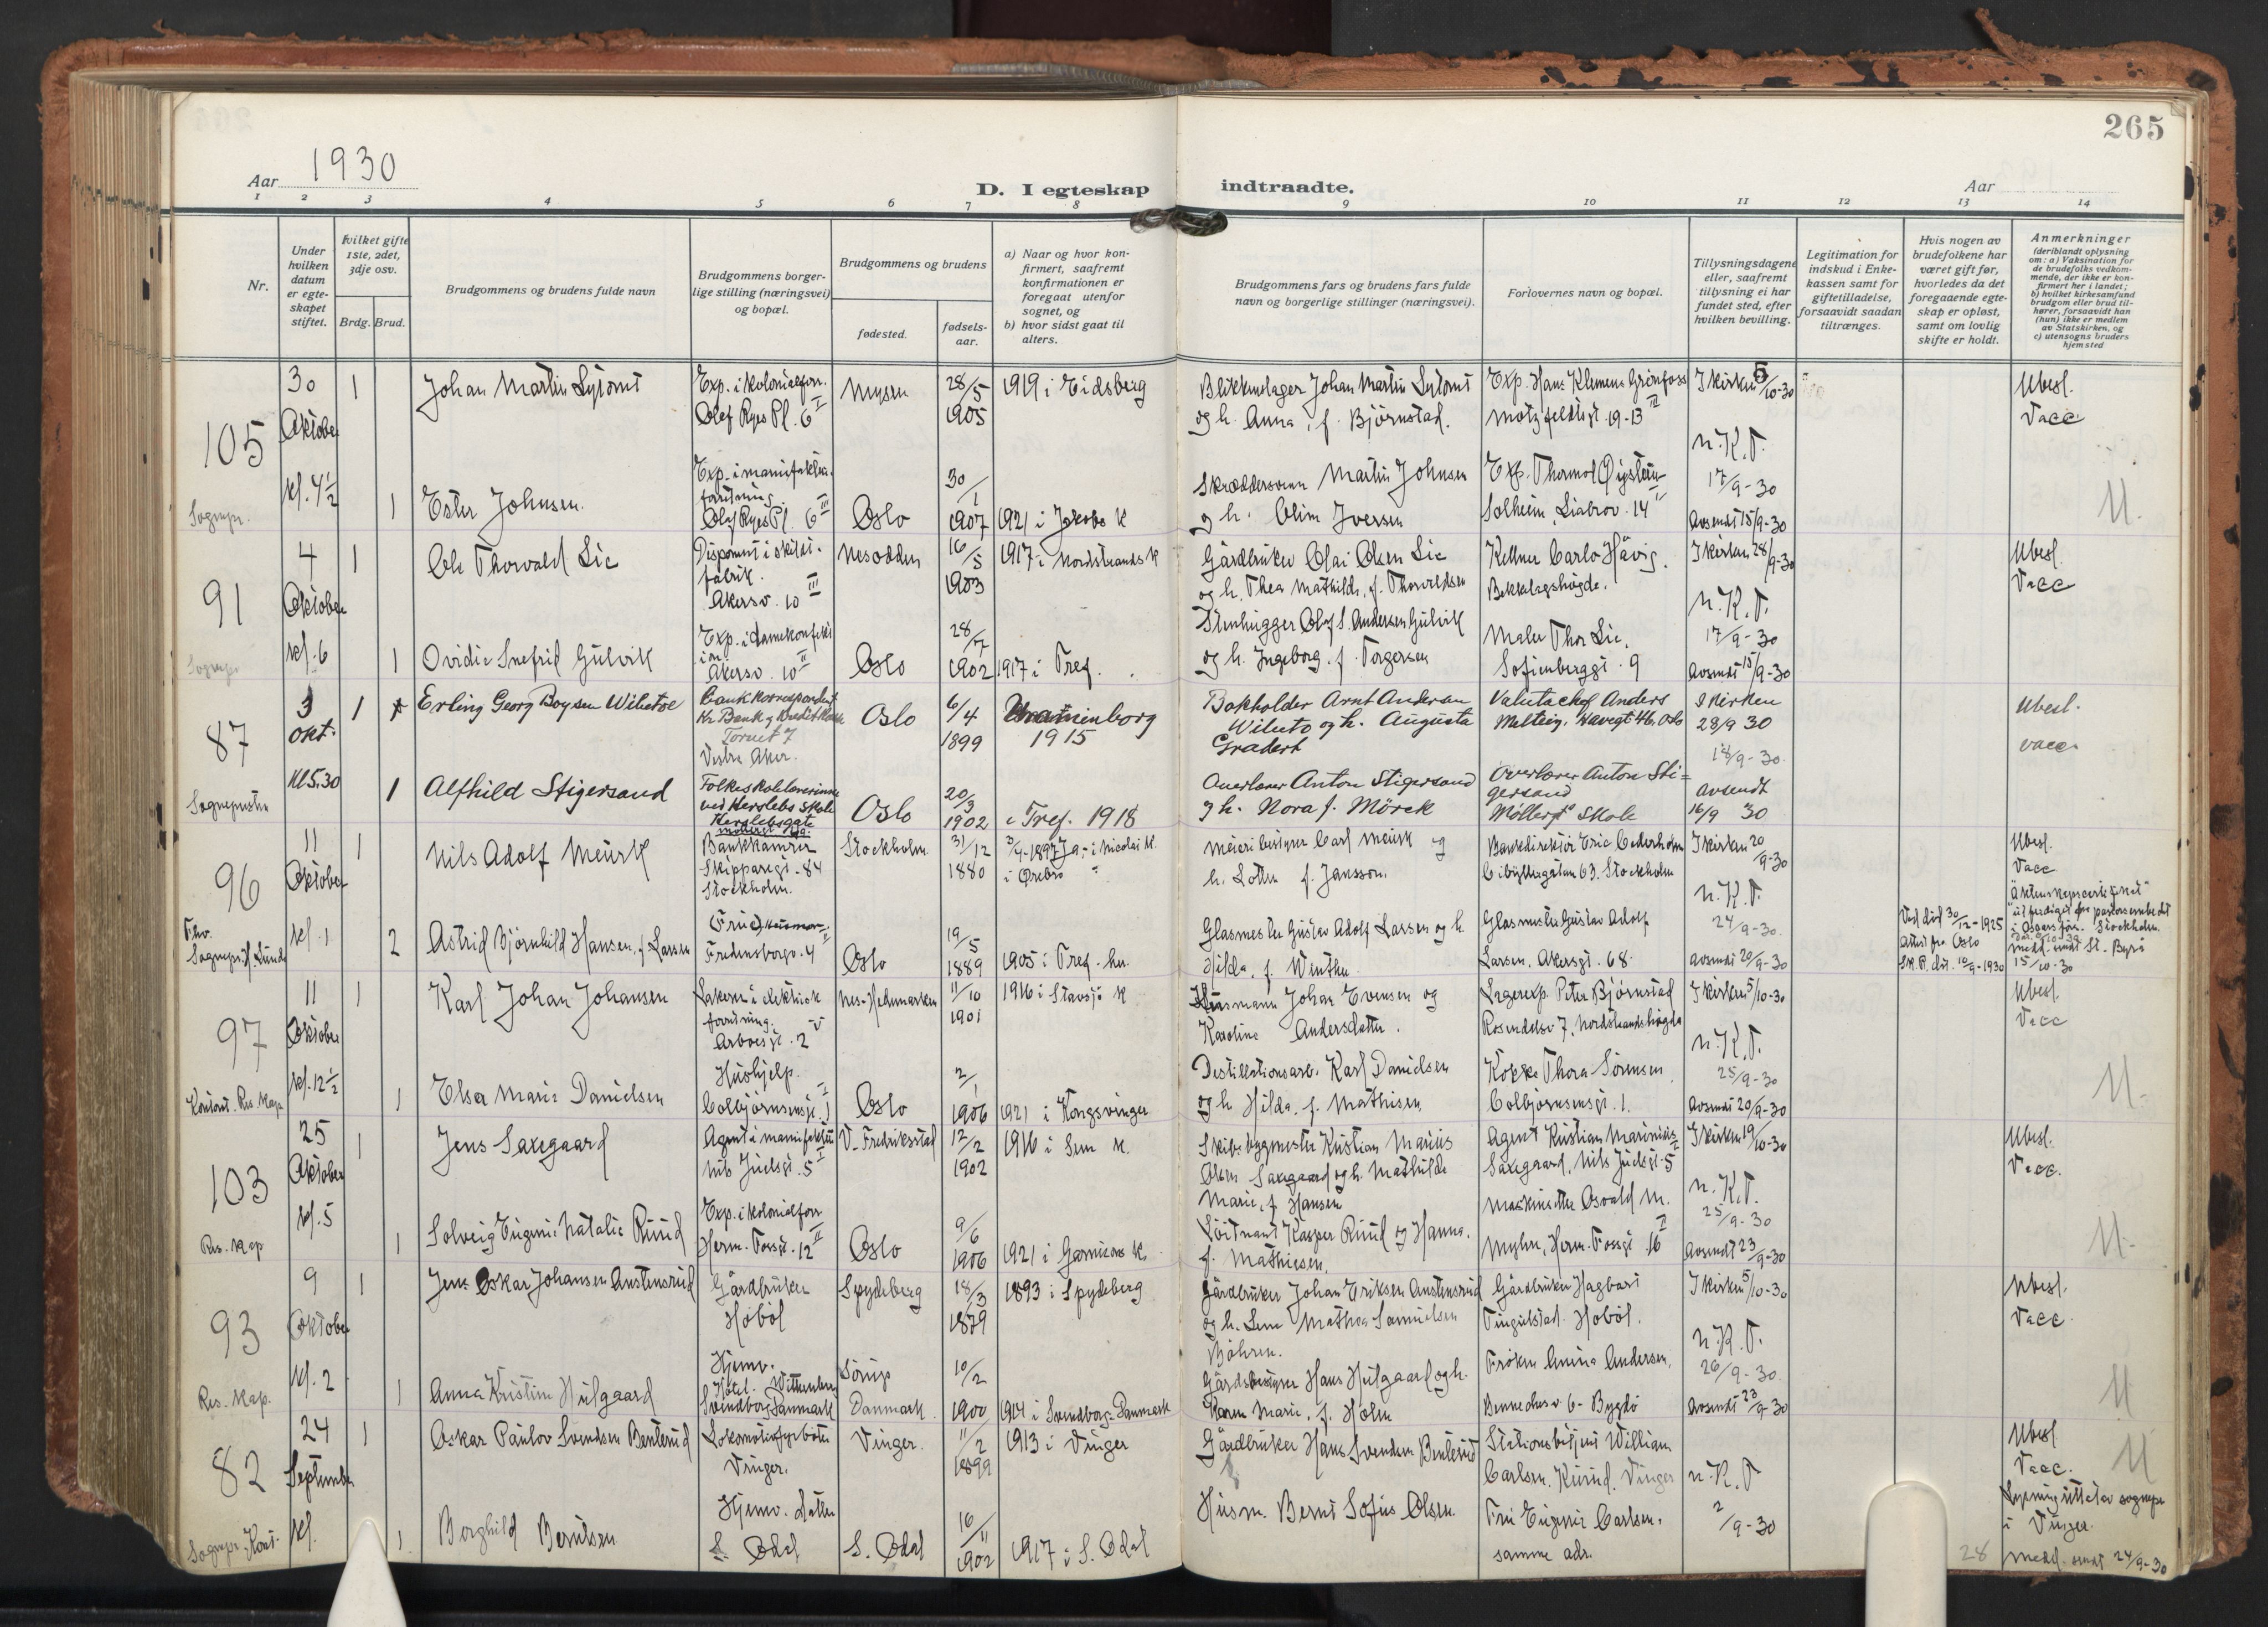 265
Aar 1930
D. I egteskap indtraadte.
Aar
1 2 3 4 5 6 7 8 9 10 11 12 13 14
Nr.
Under hvilken datum er egteskapet stiftet.
hvilket gifte 1ste, 2det, 3dje osv.
Brdg. Brud.
Brudgommens og brudens fulde navn
Brudgommens borgerlige stilling (næringsvei) og bopæl.
Brudgommens og brudens
fødested.
fødselsaar.
a) Naar og hvor konfirmert, saafremt konfirmationen er foregaat utenfor sognet, og
b) hvor sidst gaat til alters.
Brudgommens fars og brudens fars fulde navn og borgerlige stillinger (næringsvei).
Forlovernes navn og bopæl.
Tillysningsdagene eller, saafremt tillysning ei har fundet sted, efter hvilken bevilling.
Legitimation for indskud i Enkekassen samt for giftetilladelse, forsaavidt saadan tiltrænges.
Hvis nogen av brudefolkene har været gift før, hvorledes da det foregaaende egteskap er opløst, samt om lovlig skifte er holdt.
Anmerkninger
(deriblandt oplysning om: a) Vaksination for de brudefolks vedkommende, der ikke er konfirmert her i landet;
b) hvilket kirkesamfund brudgom eller brud tilhører, forsaavidt han (hun) ikke er medlem av Statskirken, og
c) utensogns bruders hjemsted
105
30 Oktober kl. 4½
Sognepr.
1 Johan Martin
Exp. i kolonialforr.
Olaf Ryes Pl. 6 I
Mysen 28/5 1905
1919 i Eidsberg
Johan Martin
og h. Anna, f. Bjørnstad.
Exp. Hans Klemens Grönfoss
Motzfeldtsgt. 19-13 II
I kirken 5/10-30
Ubesl.
Vacc
n.K.T.
1 Ester Johnsen.
Exp. i manufaktur-
forretning
Olaf Ryes Pl. 6 III
Oslo 30/1 1907
1921 i Jakobs K
Skræddersvenn Martin Johnsen
og h. Oline Iversen
Exp. Thormod Öystein
Solheim, Liabrov. 14 II
17/9-30
Avsendt 15/9-30
91
4 Oktober kl. 6
Sognepr
1 Ole Thorvald Lie
Disponent i skilt-
fabrik.
Akersv. 10 III
Nesodden 16/5 1903
1917 i Nordstrands K
Gårdbruker Olai Olsen Lie
og h. Thea Mathilde, f. Thorvaldsen
Kellner Carlo Hävig.
Bekkelagshögde.
I kirken 28/9-30
Ubesl.
Vacc
n.K.T.
1 Ovidie Snefrid Gulvik
Exp. i damekonfeksjon.
Akersv. 10 II
Oslo 28/7 1902
1917 i Tref.
Stenhugger Olaf S. Andersen Gulvik
og h. Ingeborg, f. Torgersen
Maler Thor Lie.
Sofienberggt. 9
17/9-30
Avsendt 15/9-30
87
3 okt. Kl 5.30
Sogneprestn
1 Erling Georg Boysen
Bankkorrespondent
Kr. Bank og Kreditkasse
Tornet 7
Vestre Aker.
Oslo 6/4 1899
Uranienborg 1915
Bokholder Arnt Andersen
og h. Augusta
Gradert
Valutachef Anders
I kirken
28/9 30
18/9-30
Ubesl.
vacc.
1 Alfhild Stigersand
Folkeskolelærerinne
ved Herslebs skole
Herslebsgate
Oslo 20/3 1902
i Tref. 1918
Overlærer Anton Stigersand
og h. Nora f. Mörck
Overlærer Anton Sti-
gersand
Möllergt Skole
avsendt
16/9 30
96
11 Oktober kl. 1
Fhv. Sognepr. Lunde
1 Nils Adolf Meurk
Bankkamrer
Skippargt. 84
Stockholm.
Stockholm. 31/12 1880
i Nicolai K.
i Örebro
Meieribestyrer Carl Meurk og
h. Lotten f. Jansson.
Bankdirektör Eric Cederholm
63. Stockholm
I kirken 20/9-30
Ubesl.
Vacc
n.K.T.
2 Astrid Björnhild Hansen, f. Larsen
(Frue)
Fredensborgv. 4
Oslo 19/5 1889
1905 i Tref. kr.
Glasmester Gustav Adolf Larsen og h.
Hilda, f. Winther
Glasmester Gustav Adolf
Larsen. Akersgt. 68.
24/9-30.
Avsendt 20/9-30
Ved död 30/12-1925
Attest fra Oslo
Sk.R. dat. 10/9-1930
utferdiget fra pastorsembedet
i Oscars förs. Stockholm.
medd. sendt St. Byrå
15/10-30
97
11 Oktober kl. 12½
Konst. Res. Kap
1 Karl Johan Johansen
Lakerer i elektrisk
forretning.
Arboesgt. 2 V
Nes-Hedmarken 11/10 1901
1916 i Stavsjö K
Husmann Johan Evensen og
Karoline Andersdatter.
Lagerexp. Peter Björnstad
Rosendalsv 7, Nordstrandshögda
I kirken 5/10-30
Ubesl.
Vacc
n.K.T.
1 Elsa Marie Danielsen
Hushjelp.
Colbjörnsensgt. 1 I
Oslo 2/1 1906
1921 i Kongsvinger
Destillationsarb. Karl Danielsen
og h. Hilda, f. Mathisen
Kokke Thora Sörensen
Colbjörnsensgt. 1.
25/9-30
Avsendt 20/9-30
103
25 Oktober kl. 5
Res. Kap
1 Jens Saxegaard
Agent i manufaktur
Nils Juelsgt. 5 I
V. Fredrikstad 12/2 1902
1916 i Sem K.
Skibsbyggmester Kristian Marius
Olsen Saxegaard og h. Mathilde
Marie, f Hansen
Agent Kristian Marinius
Saxegaard, Nils Juelsgt. 5
I kirken 19/10-30
Ubesl.
Vacc.
n.K.T.
1 Solveig Eugenie Natalie Ruud
Exp. i kolonialforr
Herm. Fossgt. 12 II
Oslo 9/6 1906
1921 i Garnisons K.
Löitnant Kasper Ruud og Hanna,
f. Mathiesen.
Maskinsetter Osvald M.
Myhre, Herm. Fossgt 16 II
25/9-30
Avsendt 23/9-30
93
9 Oktober kl. 2
Res. Kap.
1 Jens Oskar Johansen Austensrud
Gårdbruker
Hoböl
Spydeberg 18/3 1879
1893 i Spydeberg
Gårdbruker Johan Eriksen Austensrud
og h. Lena Mathea Samuelsen
Gårdbruker Hagbart
Tingulstad. Hoböl.
I kirken 5/10-30
Ubesl.
Vacc.
n.K.T.
1 Anna Kristine Hulgaard
Hjemv.
Hotel
Svendborg Danmark
Sörup Danmark 10/2 1900
1914 i Svendborg-Danmark
Gårdsbestyrer Hans Hulgaard og h.
Karen Marie, f. Holm
Fröken Anina Andersen,
Bennechesv 6 - Bygdö
26/9-30.
Avsendt 23/9-30
82
24 September kl.
Sognepr. Kont.
1 Oskar Paulov Svendsen Benterud
Lokomotivfyrböter
Vinger.
Vinger. 11/2 1899
1913 i Vinger
Gårdbruker Hans Svendsen Benterud
Stationsbetjent William
Carlsen. Kurud. Vinger
n.K.T
Ubesl
Vacc.
Lysning uttatt av sognepr
i Vinger.
1 Borghild Berntsen
Hjemv. datter
S. Odal
S. Odal 16/11 1902
1917 i S. Odal
Husm. Bernt Sofus Olsen.
Fru Eugenie Carlsen.
samme adr.
2/9-30
28
Medd. sendt 24/9-30